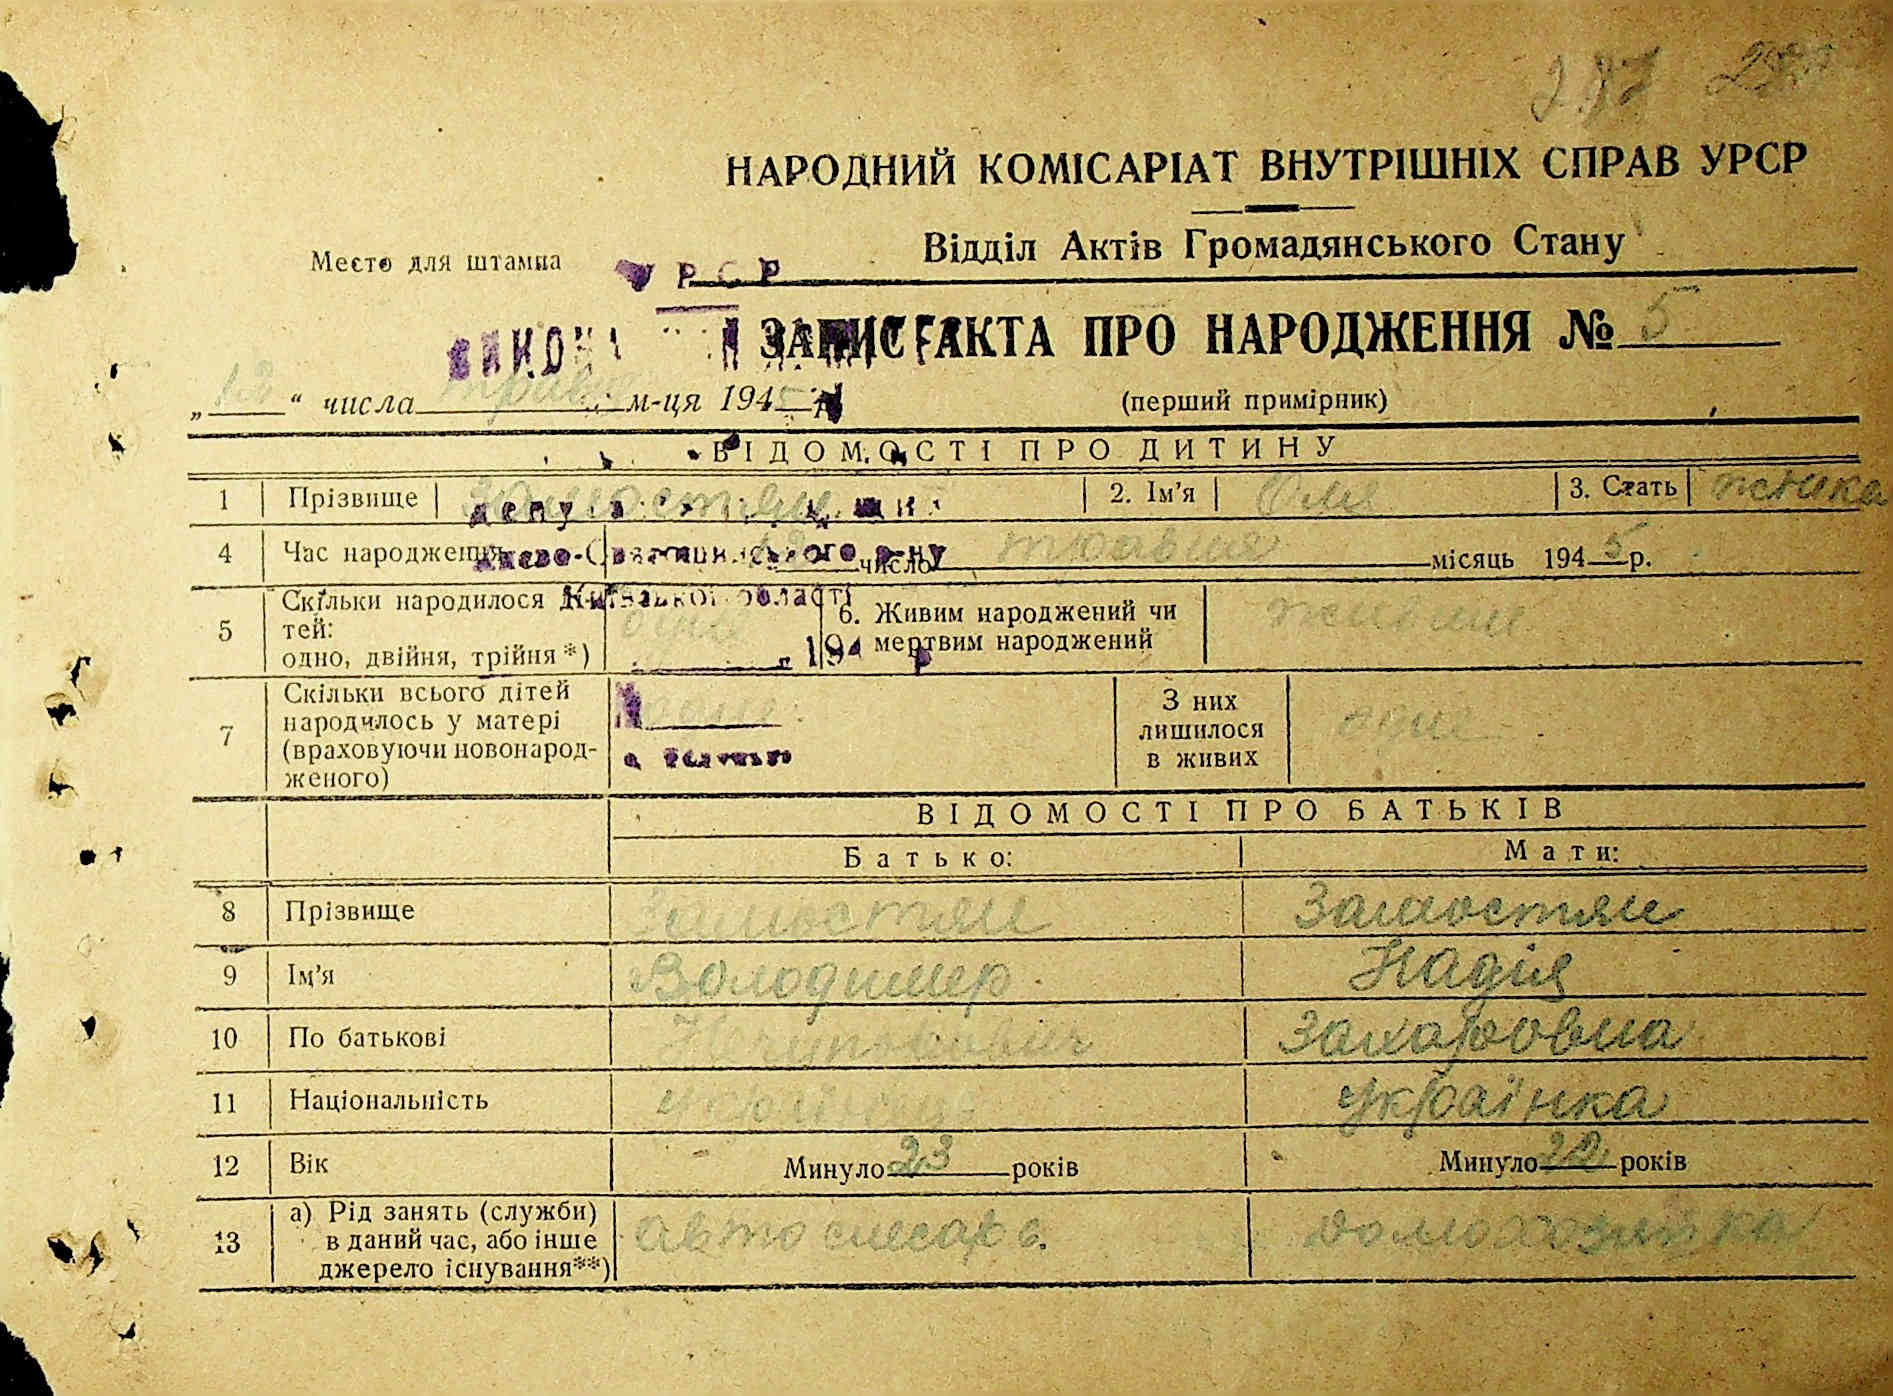 287
НАРОДНИЙ КОМІСАРІАТ ВНУТРІШНІХ СПРАВ УРСР
Відділ Актів Громадянського Стану
Место для штампа
УРСР
ЗАПИС АКТА ПРО НАРОДЖЕННЯ № 5
„ 12 “ числа травня м-ця 1945
(перший примірник)
ВІДОМОСТІ ПРО ДИТИНУ
1 Прізвище Замостян 2. Ім'я Оля 3. Стать жінка
4 Час народження 12 число травня місяць 1945 р.
Києво-Святошинського р-ну
Київської області
5 Скільки народилося дітей:
одно, двійня, трійня*) одна
6. Живим народжений чи
мертвим народжений живим
194 р
7 Скільки всього дітей
народилось у матері
(враховуючи новонарод-
женого) одне
З них
лишилося
в живих одне
ВІДОМОСТІ ПРО БАТЬКІВ
Батько: Мати:
8 Прізвище Замостян Замостян
9 Ім'я Володимер Надія
10 По батькові Захаровна
11 Національність Українець Українка
12 Вік Минуло 23 років Минуло 22 років
13 а) Рід занять (служби)
в даний час, або інше
джерело існування**) автослесарь домохозяйка